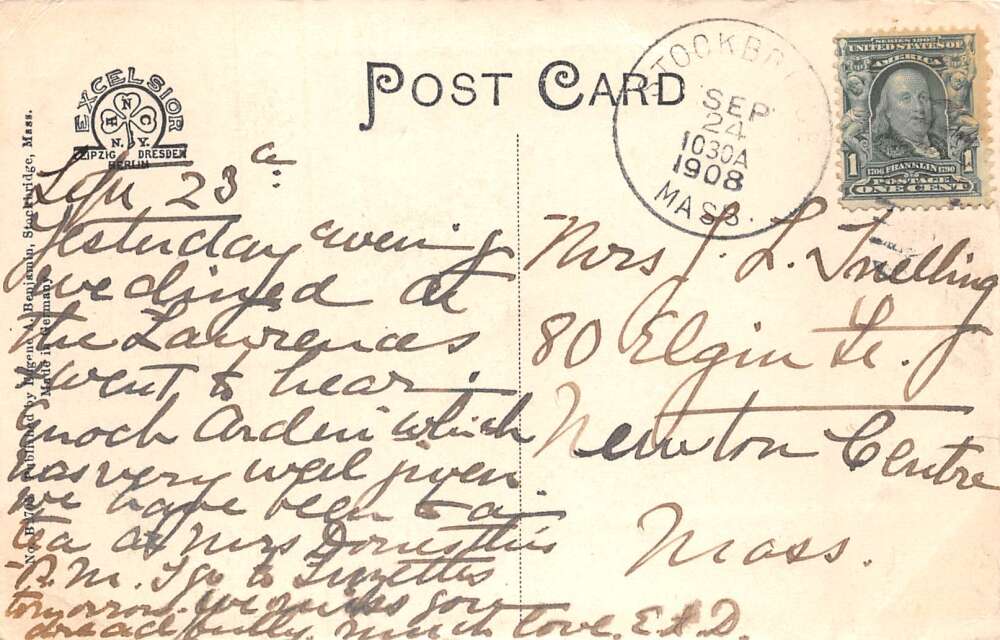 POST CARD
EXCELSIOR
N
H C
N.Y.
LEIPZIG DRESDEN
BERLIN
STOCKBRIDGE
SEP
24
1030A
1908
MASS.
SERIES 1902
UNITED STATES OF
AMERICA
1706 FRANKLIN 1790
POSTAGE
1 ONE CENT 1
No. B 1705 Published by Eugene A. Benjamin, Stockbridge, Mass.
Made in Germany.
Sept 23d
Yesterday evening
we dined at
the Lawrences
& went to hear
Enoch Arden which
was very well given
we have been to a
tea at Mrs this
P.M. I go to Lizettes
tomorrow. We miss you
dreadfully. Much love. E L D.
Mrs J. L. Snelling
80 Elgin St.
Newton Centre
Mass.